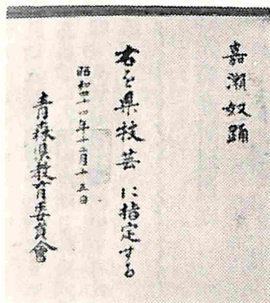 嘉瀬奴踊
右を県技芸に指定する
昭和四十四年十二月十五日
青森県教育委員會